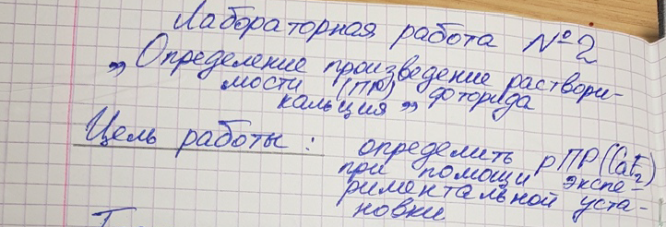 Лабораторная работа №2
„Определение произведение раствори-
мости (ПР) фторида
кальция„
Цель работы: определить pПР(CaF2)
при помощи экспе-
риментальной уста-
новки